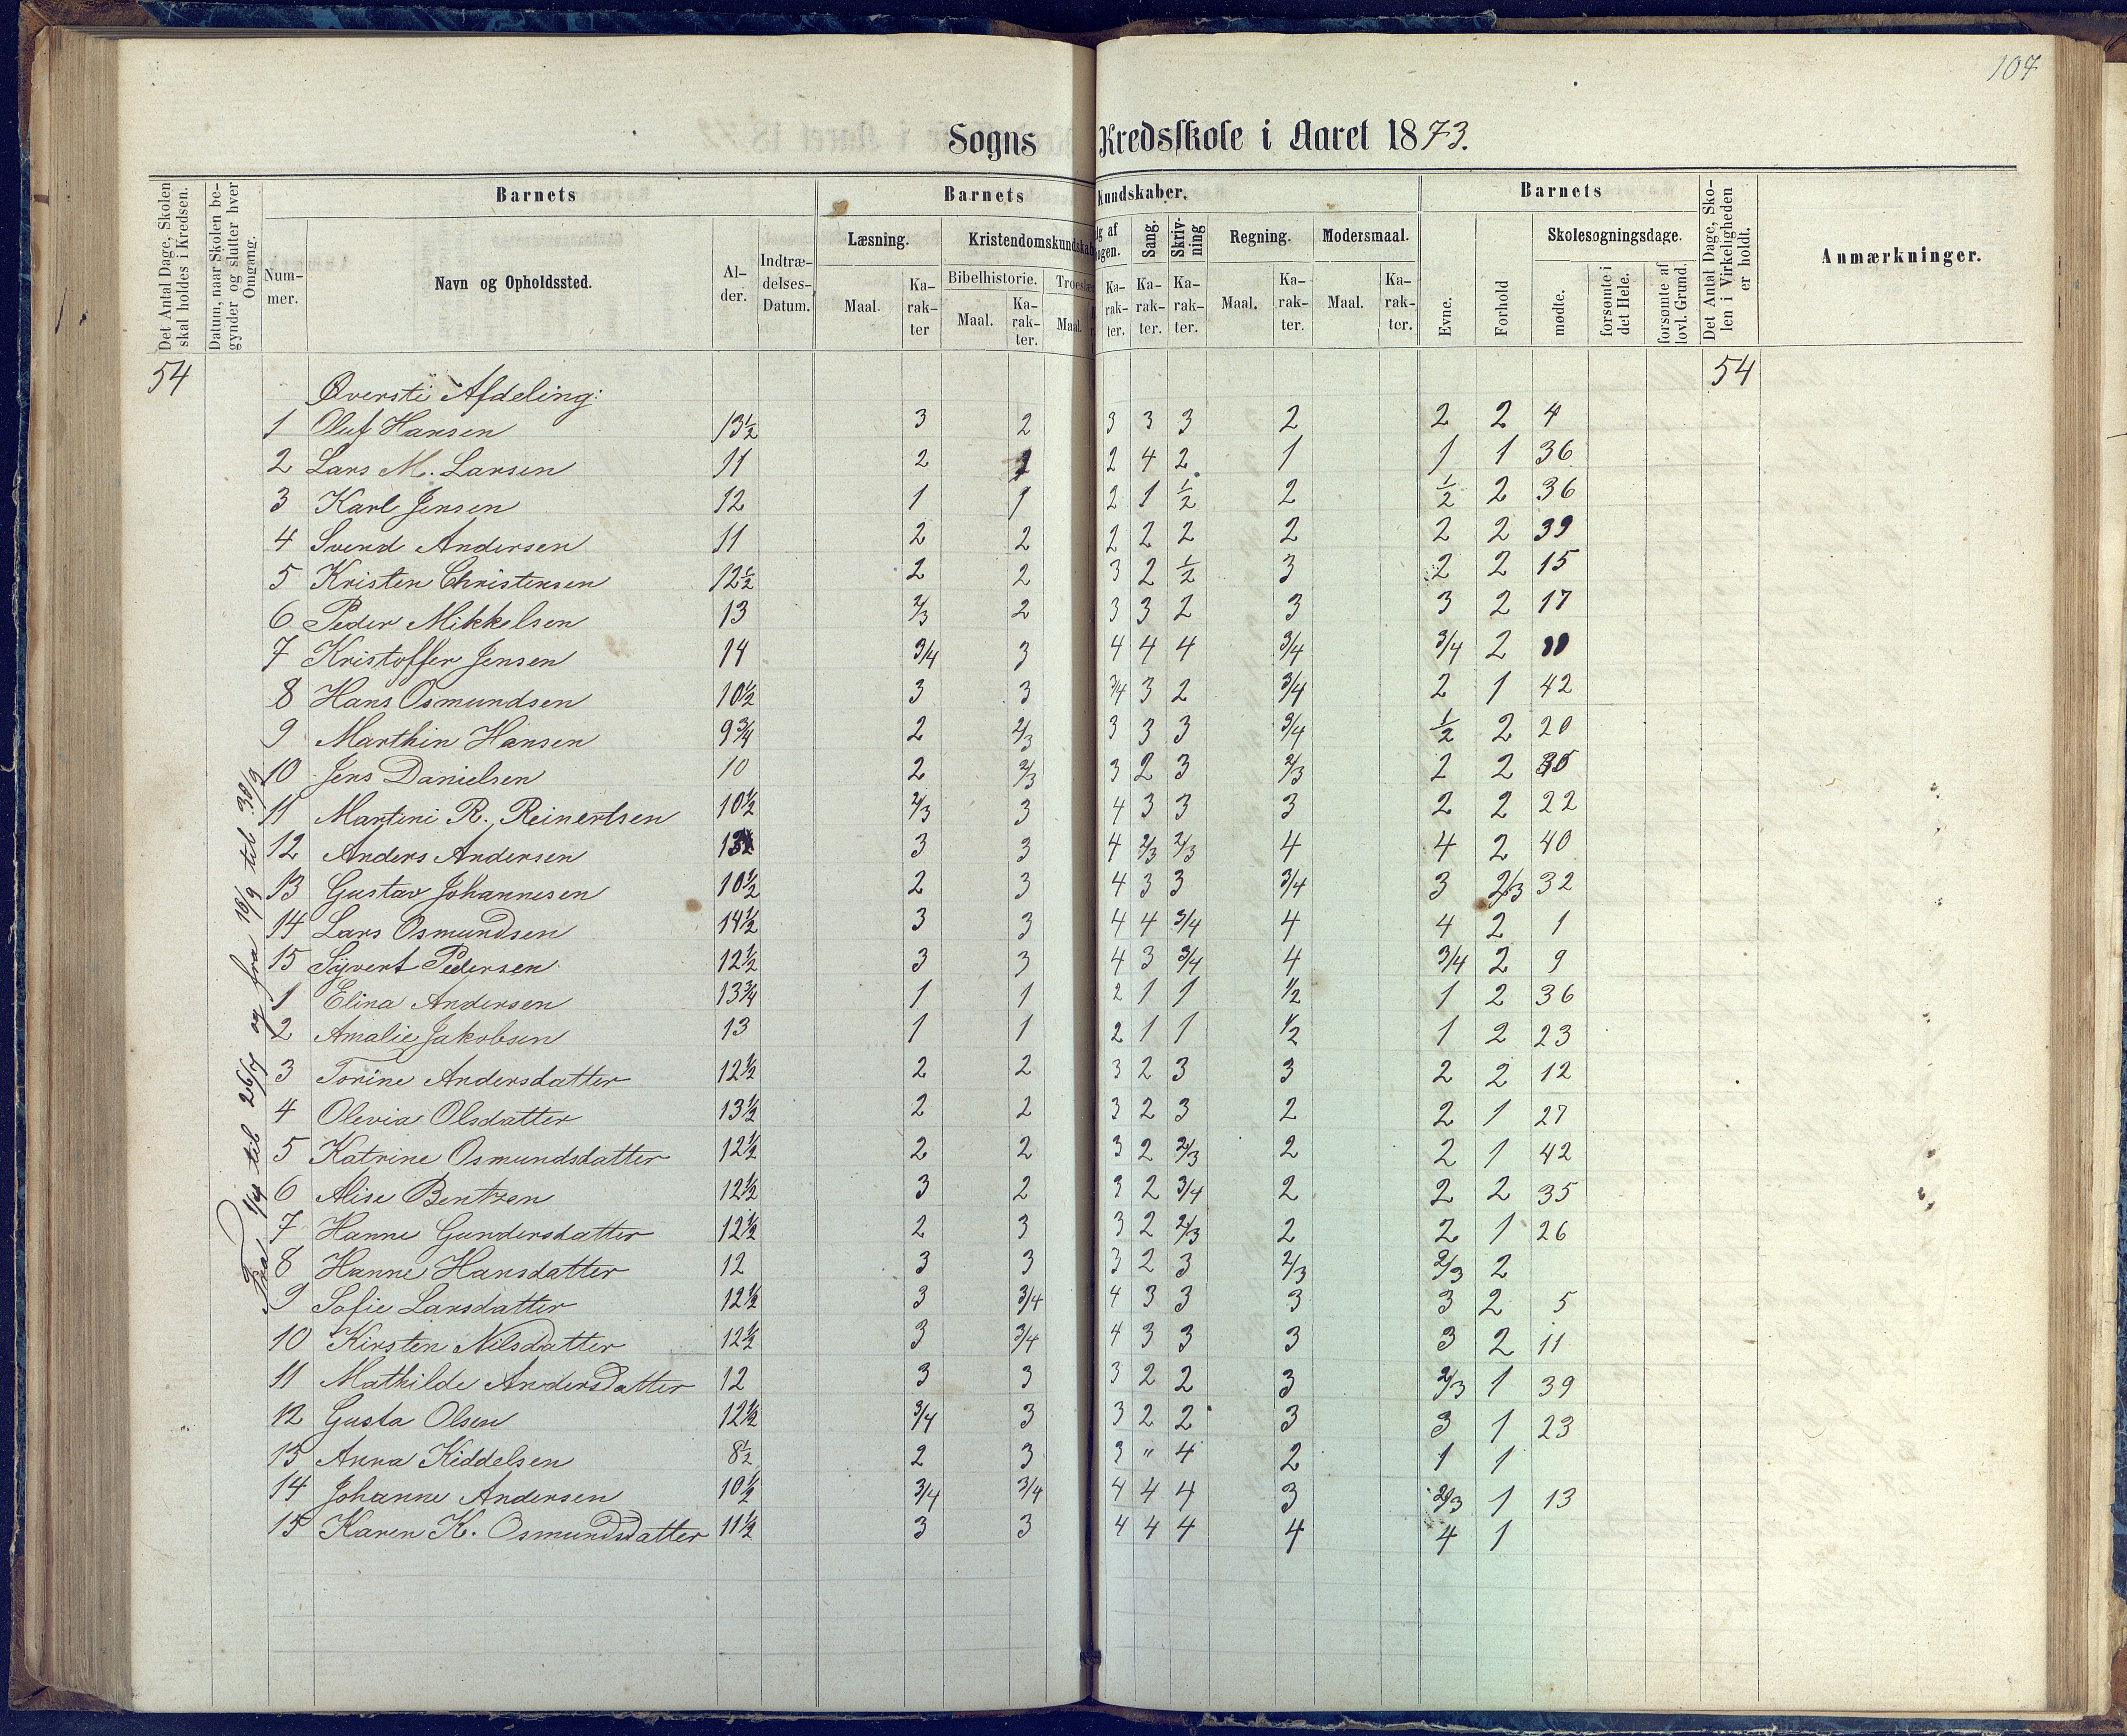 107
Sogns Kredsskole i Aaret 1873.
Det Antal Dage, Skolen skal holdes i Kredsen.
Datum, naar Skolen begynder og slutter hver Omgang.
Barnets
Barnets Kundskaber.
Barnets
Det Antal Dage, Skolen i Virkeligheden er holdt.
Anmærkninger.
Nummer.
Navn og Opholdssted.
Alder.
Indtrædelses-Datum.
Læsning.
Kristendomskundskab
Sang.
Skrivning
Regning.
Modersmaal.
Evne.
Forhold
Skolesøgningsdage.
Bibelhistorie.
mødte.
forsømte i det Hele.
forsømte af lovl. Grund
Maal. Karakter Maal. Karakter. Maal. Karakter. Karakter. Karakter. Maal. Karakter. Maal. Karakter.
54 54
Øverste Afdeling:
1 Oluf Hansen 13½ 3 2 3 3 3 2 2 2 4
2 Lars M. Larsen 11 2 2 4 2 1 1 1 36
3 Karl Jensen 12 1 1 2 1 ½ 2 ½ 2 36
4 Svend Andersen 11 2 2 2 2 2 2 2 2 39
5 Kristen Christensen 12½ 2 2 3 2 ½ 3 2 2 15
6 Peder Mikkelsen 13 2/3 2 3 3 2 3 3 2 17
7 Kristoffer Jensen 14 3/4 3 4 4 4 3/4 3/4 2
8 Hans Osmundsen 10½ 3 3 3/4 3 2 3/4 2 1 42
9 Marthin Hansen 9¾ 2 2/3 3 3 3 3/4 ½ 2 20
10 Jens Danielsen 10 2 2/3 3 2 3 2/3 2 2
11 Martini R. Reinertsen 10½ 2/3 3 4 3 3 3 2 2 22
12 Anders Andersen 3 3 4 2/3 2/3 4 4 2 40
13 Gustav Johannesen 10½ 2 3 4 3 3 3/4 3 2/3 32
14 Lars Osmundsen 14½ 3 3 4 4 3/4 4 4 2 1
15 Syvert Pedersen 12½ 3 3 4 3 3/4 4 3/4 2 9
1 Elina Andersen 13¾ 1 1 2 1 1 ½ 1 2 36
2 Amalie Jakobsen 13 1 1 2 1 1 ½ 1 2 23
3 Torine Andersdatter 12½ 2 2 3 2 3 3 2 2 12
4 Olevia Olsdatter 13½ 2 2 3 2 3 2 2 1 27
5 Katrine Osmundsdatter 12½ 2 2 3 2 2/3 2 2 1 42
6 Alise Bentzen 12½ 3 2 3 2 3/4 2 2 2 35
7 Hanne Gundersdatter 12½ 2 3 3 2 2/3 2 2 1 26
8 Hanne Hansdatter 12 3 3 3 2 3 2/3 2/3 2
9 Sofie Larsdatter 12½ 3 3/4 4 3 3 3 3 2 5
10 Kirsten Nilsdatter 12½ 3 3/4 4 3 3 3 3 2 11
11 Mathilde Andersdatter 12 3 3 3 2 2 3 2/3 1 39
12 Gusta Olsen 12½ 3/4 3 3 2 2 3 3 1 23
13 Anna Kiddelsen 8½ 2 3 3 " 4 2 1 1
14 Johanne Andersen 10½ 3/4 3/4 4 4 4 3 2/3 1 13
15 Karen K. Osmundsdatter 11½ 3 3 4 4 4 4 4 1
Fra 1/4 til 26/4 og fra 16/9 til 30/9